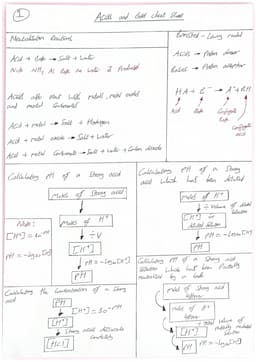 1
Acids and Bases cheat sheet
Neutralisation Reactions
Acid + Base → Salt + Water
Note NH3 As Base no Water is Produced
Acids also react with metals, metal oxides
and metal Carbonates
Acid + metal → Salt + Hydrogen
Acid + metal oxide → Salt + Water
Acid + metal Carbonate → Salt + Water + Carbon dioxide
Bronsted-Lowry model
Acids → Proton donor
Bases → Proton acceptor
HA + B → A + BH
Acid Base Conjugate Base Conjugate acid
Calculating pH of a Strong acid
Moles of Strong acid
Moles of H+
÷V
[H+]
pH = -log10[H+]
pH
Note:
[H+] = 10^-pH
pH = -log10[H+]
Calculating pH of a Strong
acid which has been diluted
Moles of H+
÷ Volume of diluted
Solution
[H+] in
diluted solution
pH = -log10[H+]
pH
Calculating the Concentration of a Strong
acid
pH
[H+] = 10^-pH
[H+]
Strong acids dissociate
completely
[HCl]
Calculating pH of a Strong acid
Solution which has been Partially
neutralised by a base
moles of Strong acid
leftover
moles of H+
leftover
÷ total volume of
partially neutralised
solution
[H+]
pH = -log10[H+]
pH